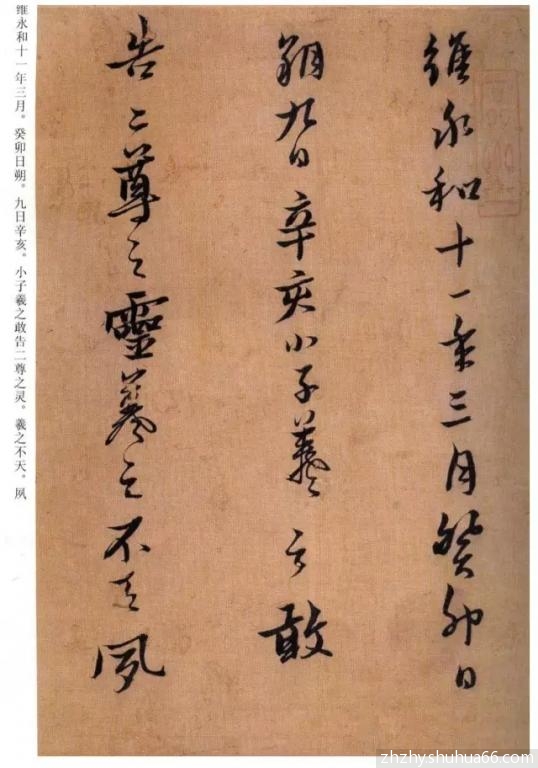 維永和十一年三月癸卯日
朔九日辛亥小子羲之敢
告二尊之靈羲之不天夙
维永和十一年三月。癸卯日朔。九日辛亥。小子羲之敢告二尊之灵。羲之不天。夙
zhzhyshuhua66.com